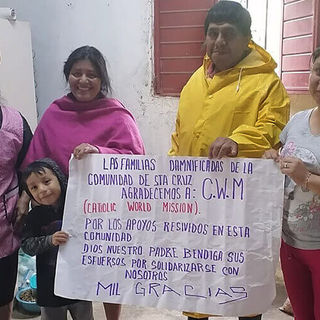 LAS FAMILIAS DAMNIFICADAS DE LA
COMUNIDAD DE STA CRUZ
AGRADECEMOS A: C.W.M
(CATHOLIC WORLD MISSION).
POR LOS APOYOS RESIVIDOS EN ESTA
COMUNIDAD
DIOS NUESTRO PADRE BENDIGA SUS
ESFUERSOS POR SOLIDARIZARSE CON
NOSOTROS
MIL GRACIAS